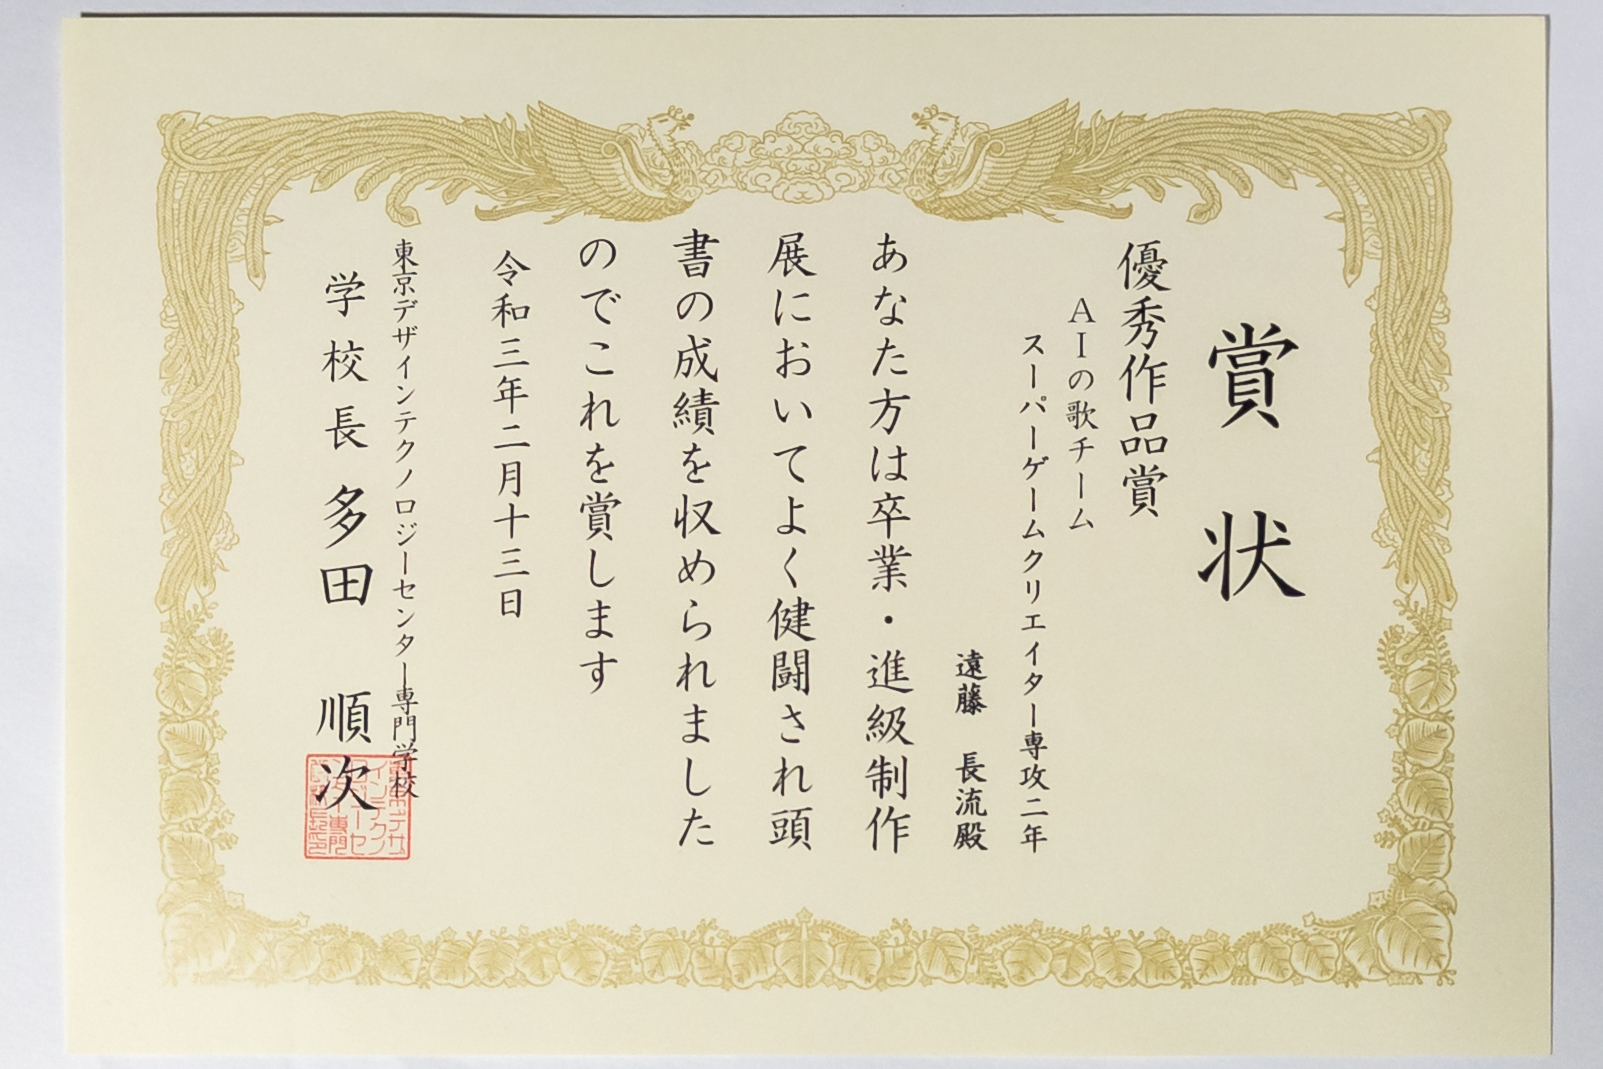 賞状
優秀作品賞
AIの歌チーム
スーパーゲームクリエイター専攻二年
遠藤 長流殿
あなた方は卒業・進級制作
展においてよく健闘され頭
書の成績を収められました
のでこれを賞します
令和三年二月十三日
東京デザインテクノロジーセンター専門学校
学校長 多田 順次